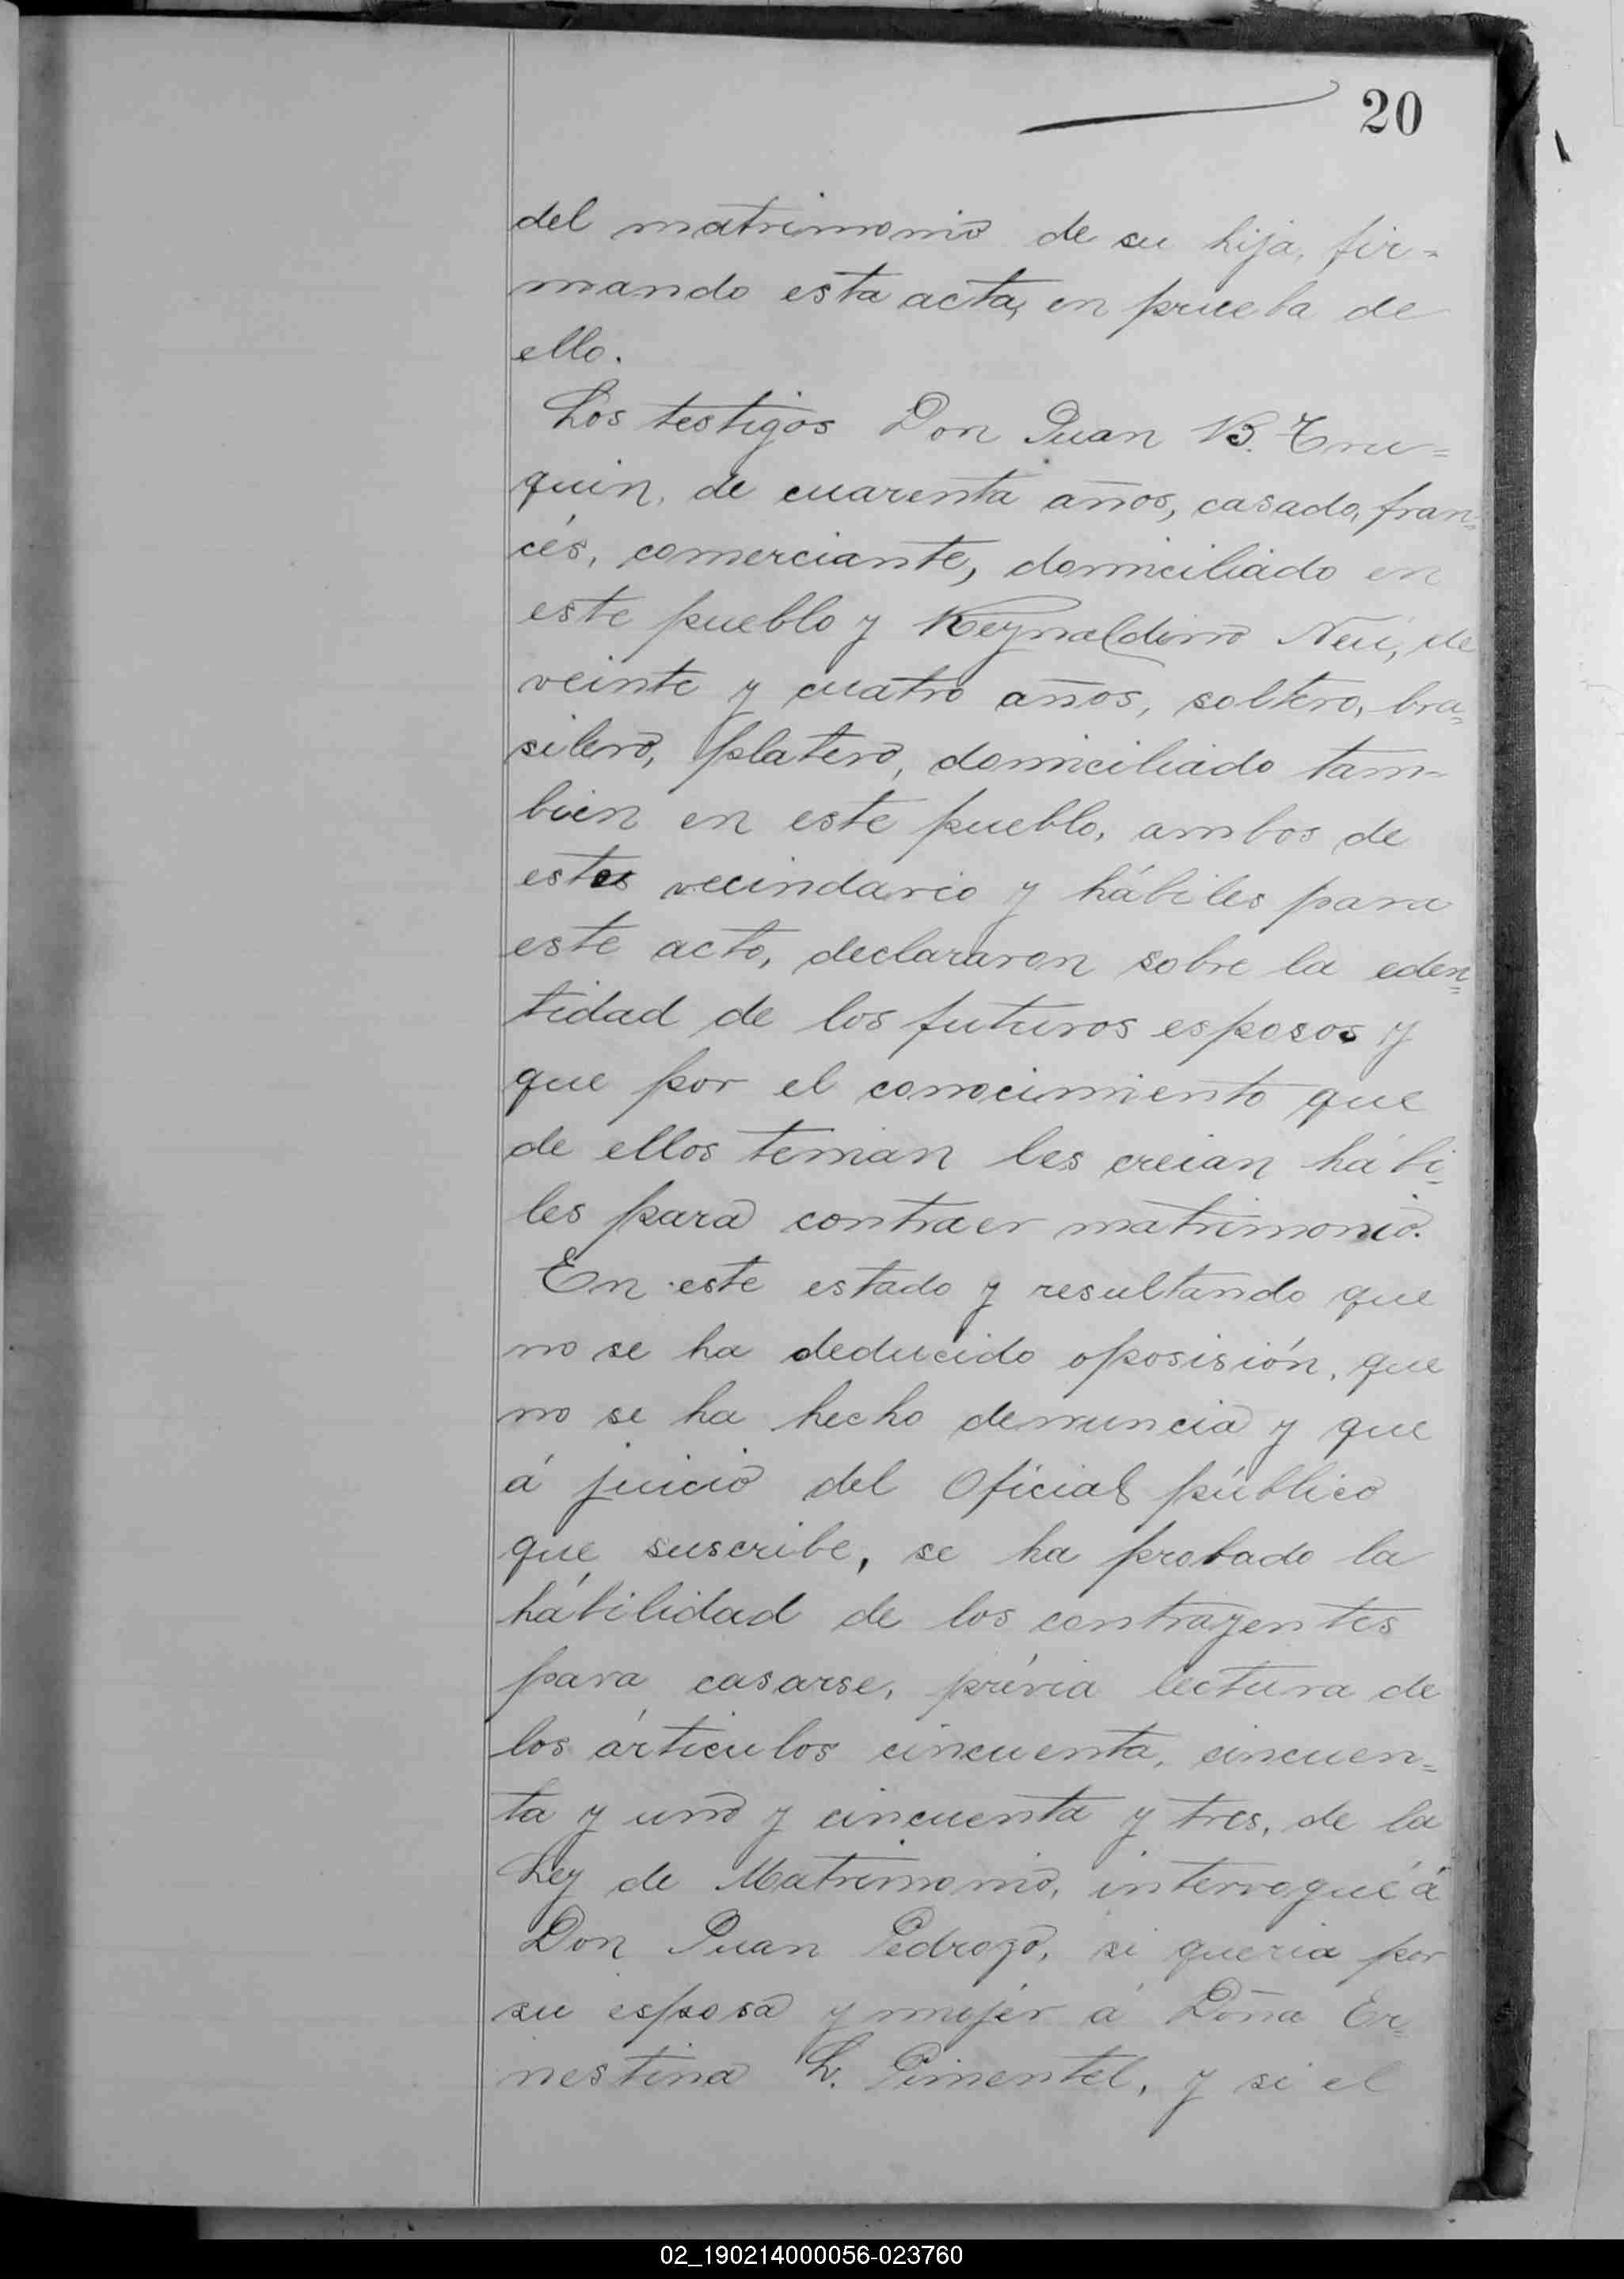 20
del matrimonio de su hija, fir=
mando esta acta, en prueba de
ello.
Los testigos Don Juan B. Tru=
quin, de cuarenta años, casado, fran=
cés, comerciante, domiciliado en
este pueblo y Reynaldino Neü, de
veinte y cuatro años, soltero, bra=
silero, platero, domiciliado tam=
bien en este pueblo, ambos de
estes vecindario y hábiles para
este acto, declararon sobre la eden=
tidad de los futuros esposos y
que por el conocimiento que
de ellos tenian les creian hábi=
les para contraer matrimonio.
En este estado y resultando que
no se ha deducido oposisión, que
no se ha hecho denuncia y que
á juicio del Oficial público
que suscribe, se ha probado la
hábilidad de los contrayentes
para casarse, prévia lectura de
los árticulos cincuenta, cincuen=
ta y uno y cincuenta y tres, de la
Ley de Matrimonio, interrogué á
Don Juan Pedrozo, si queria por
su esposa y mujer á Doña Er=
nestina L. Pimentel, y si el
02_190214000056-023760